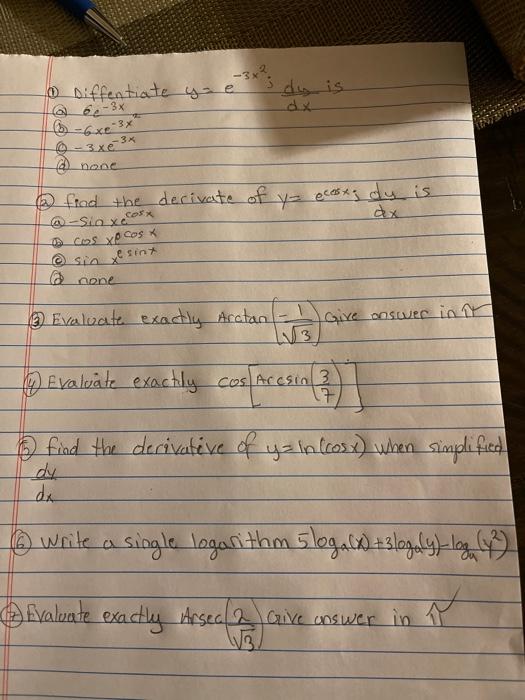 ① Diffentiate y = e^-3x²; dy/dx is
ⓐ 6e^-3x
ⓑ -6xe^-3x²
ⓒ -3xe^-3x
ⓓ none
② find the derivate of y = e^cosx; dy/dx is
ⓐ -sin xe^cosx
ⓑ cos xe^cosx
ⓒ sin xe^sinx
ⓓ none
③ Evaluate exactly Arctan(-1/√3) Give answer in π
④ Evaluate exactly cos[Arcsin(3/7)]
⑤ find the derivative of y = ln(cosx) when simplified
dy/dx
⑥ Write a single logarithm 5logₐ(x)+3logₐ(y)-logₐ(y²)
⑦ Evaluate exactly Arsec(2/√3) Give answer in π